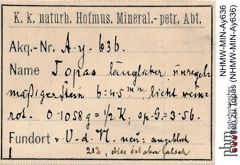 K. k. naturh. Hofmus. Mineral.-petr. Abt.
Akq.-Nr. A.y. 636.
Name Topas länglicher, unregel-
mäßiger Stein 6:4.5 mm licht wein-
rot. 0.1058 g = 1/2 K; sp. G. = 3.56.
Fundort V. d. M. neu: angeblich
213, dies ist aber falsch
NHMW-MIN-Ay636
(NHMW-MIN-Ay636)
nhm
zu Topas